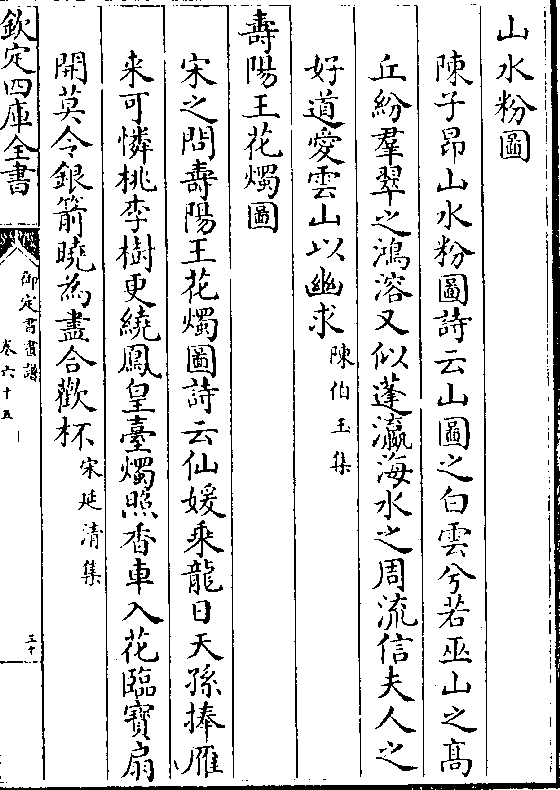 山水粉圖
陳子昻山水粉圖詩云山圖之白雲兮若巫山之髙
丘紛羣翠之鴻溶又似蓬瀛海水之周流信夫人之
好道愛雲山以幽求陳伯玉集
壽陽王花燭圖
宋之問壽陽王花燭圖詩云仙媛乘龍日天孫捧雁
来可憐桃李樹更繞鳳皇臺燭照香車入花臨寶扇
開莫令銀箭曉為盡合歡杯宋延清集
欽定四庫全書
御定書畫譜
卷六十五
三十